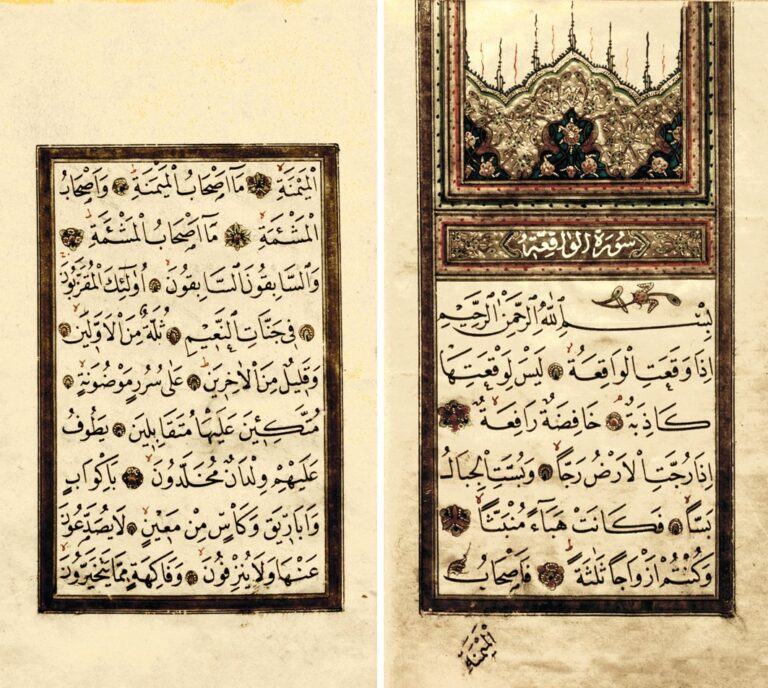 سورة الواقعة
بسم الله الرحمن الرحيم
اِذَا وَقَعَتِ الْوَاقِعَةُ لَيْسَ لِوَقْعَتِهَا
كَاذِبَةٌ خَافِضَةٌ رَافِعَةٌ
اِذَا رُجَّتِ الْاَرْضُ رَجًّا وَبُسَّتِ الْجِبَالُ
بَسًّا فَكَانَتْ هَبَآءً مُنْبَثًّا
وَكُنْتُمْ اَزْوَاجًا ثَلٰثَةً فَاَصْحَابُ
الْمَيْمَنَةِ
الْمَيْمَنَةِ مَٓا اَصْحَابُ الْمَيْمَنَةِ وَاَصْحَابُ
الْمَشْئَمَةِ مَٓا اَصْحَابُ الْمَشْئَمَةِ
وَالسَّابِقُونَ السَّابِقُونَ اُولٰٓئِكَ الْمُقَرَّبُونَ
فِى جَنَّاتِ النَّعِيمِ ثُلَّةٌ مِنَ الْاَوَّلِينَ
وَقَلِيلٌ مِنَ الْاٰخِرِينَ عَلٰى سُرُرٍ مَوْضُونَةٍ
مُتَّكِئِينَ عَلَيْهَا مُتَقَابِلِينَ يَطُوفُ
عَلَيْهِمْ وِلْدَانٌ مُخَلَّدُونَ بِاَكْوَابٍ
وَاَبَارِيقَ وَكَاْسٍ مِنْ مَعِينٍ لَا يُصَدَّعُونَ
عَنْهَا وَلَا يُنْزِفُونَ وَفَاكِهَةٍ مِمَّا يَتَخَيَّرُونَ